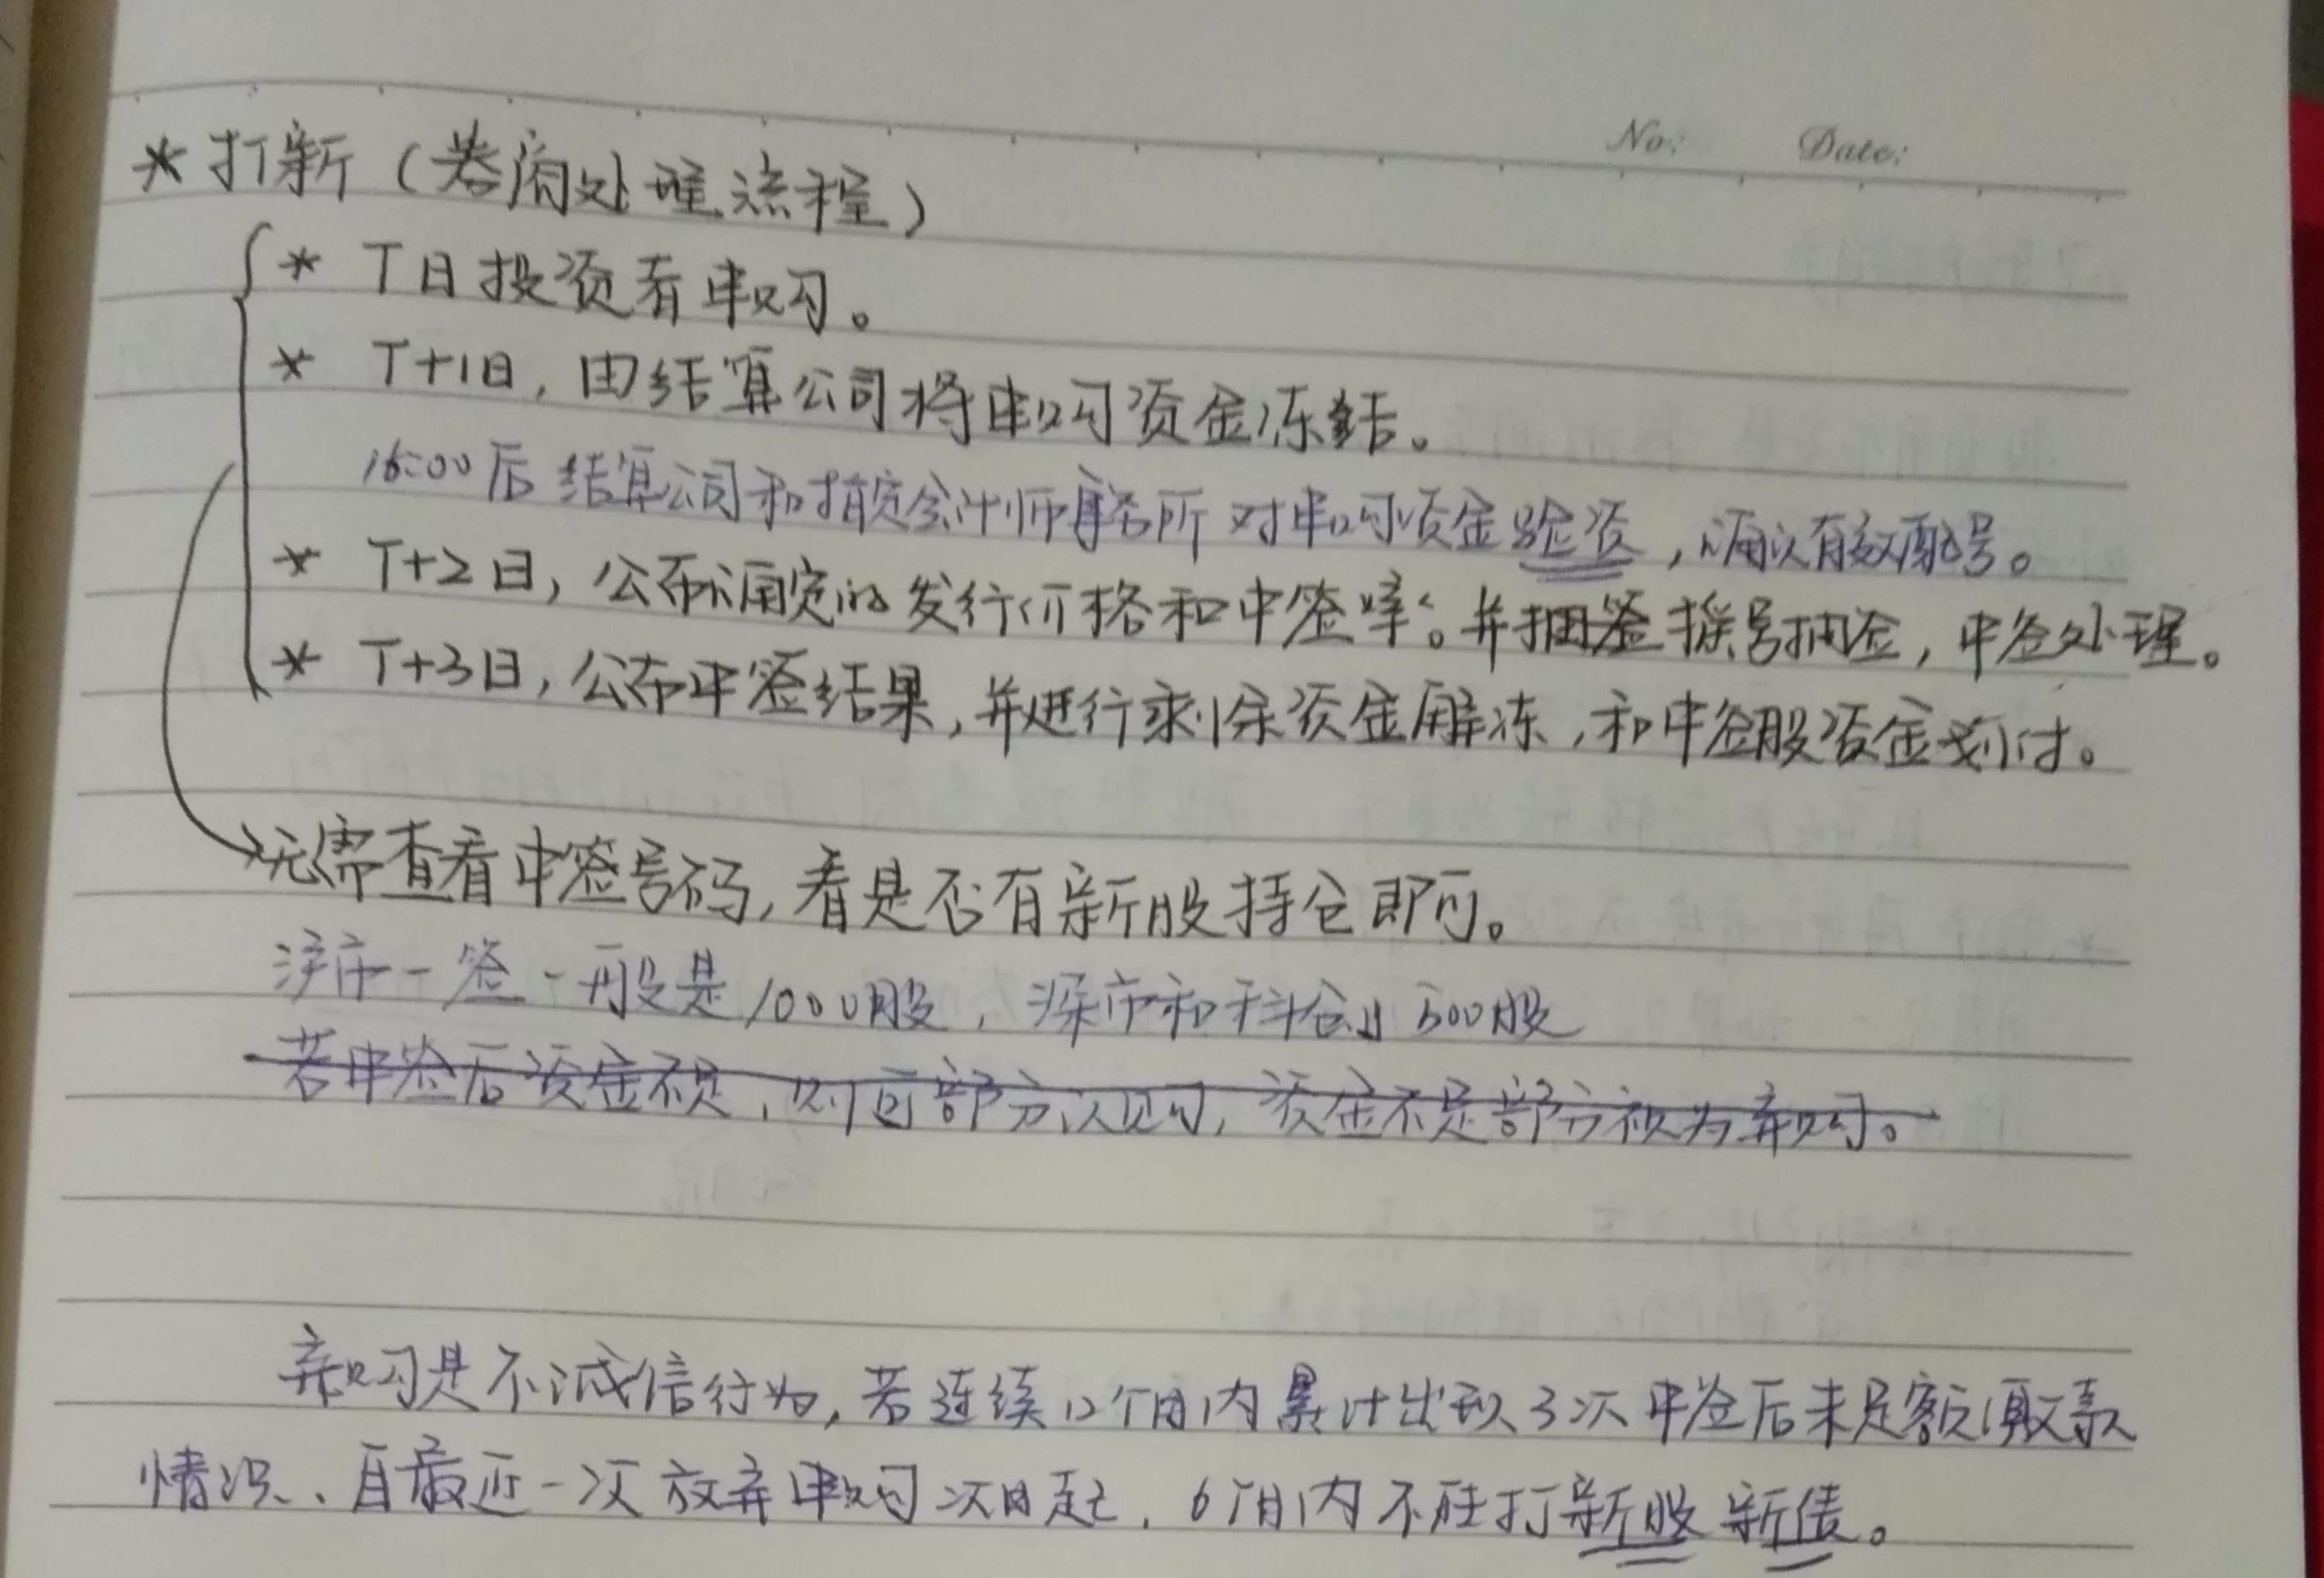 No: Date:
* 打新（券商处理流程）
* T日投资者申购。
* T+1日，由结算公司将申购资金冻结。
16:00后结算公司和指定会计师事务所对申购资金验资，确认有效配号。
* T+2日，公布确定的发行价格和中签率。并摇号抽签，中签处理。
* T+3日，公布中签结果，并进行剩余资金解冻，和中签股资金划付。
无需查看中签号码，看是否有新股持仓即可。
沪市一签一般是1000股，深市和科创 500股
若中签后资金不足，则可部分认购，资金不足部分视为弃购。
弃购是不诚信行为，若连续12个月内累计出现3次中签后未足额缴款
情况、自最近一次放弃申购次日起，6个月内不能打新股新债。